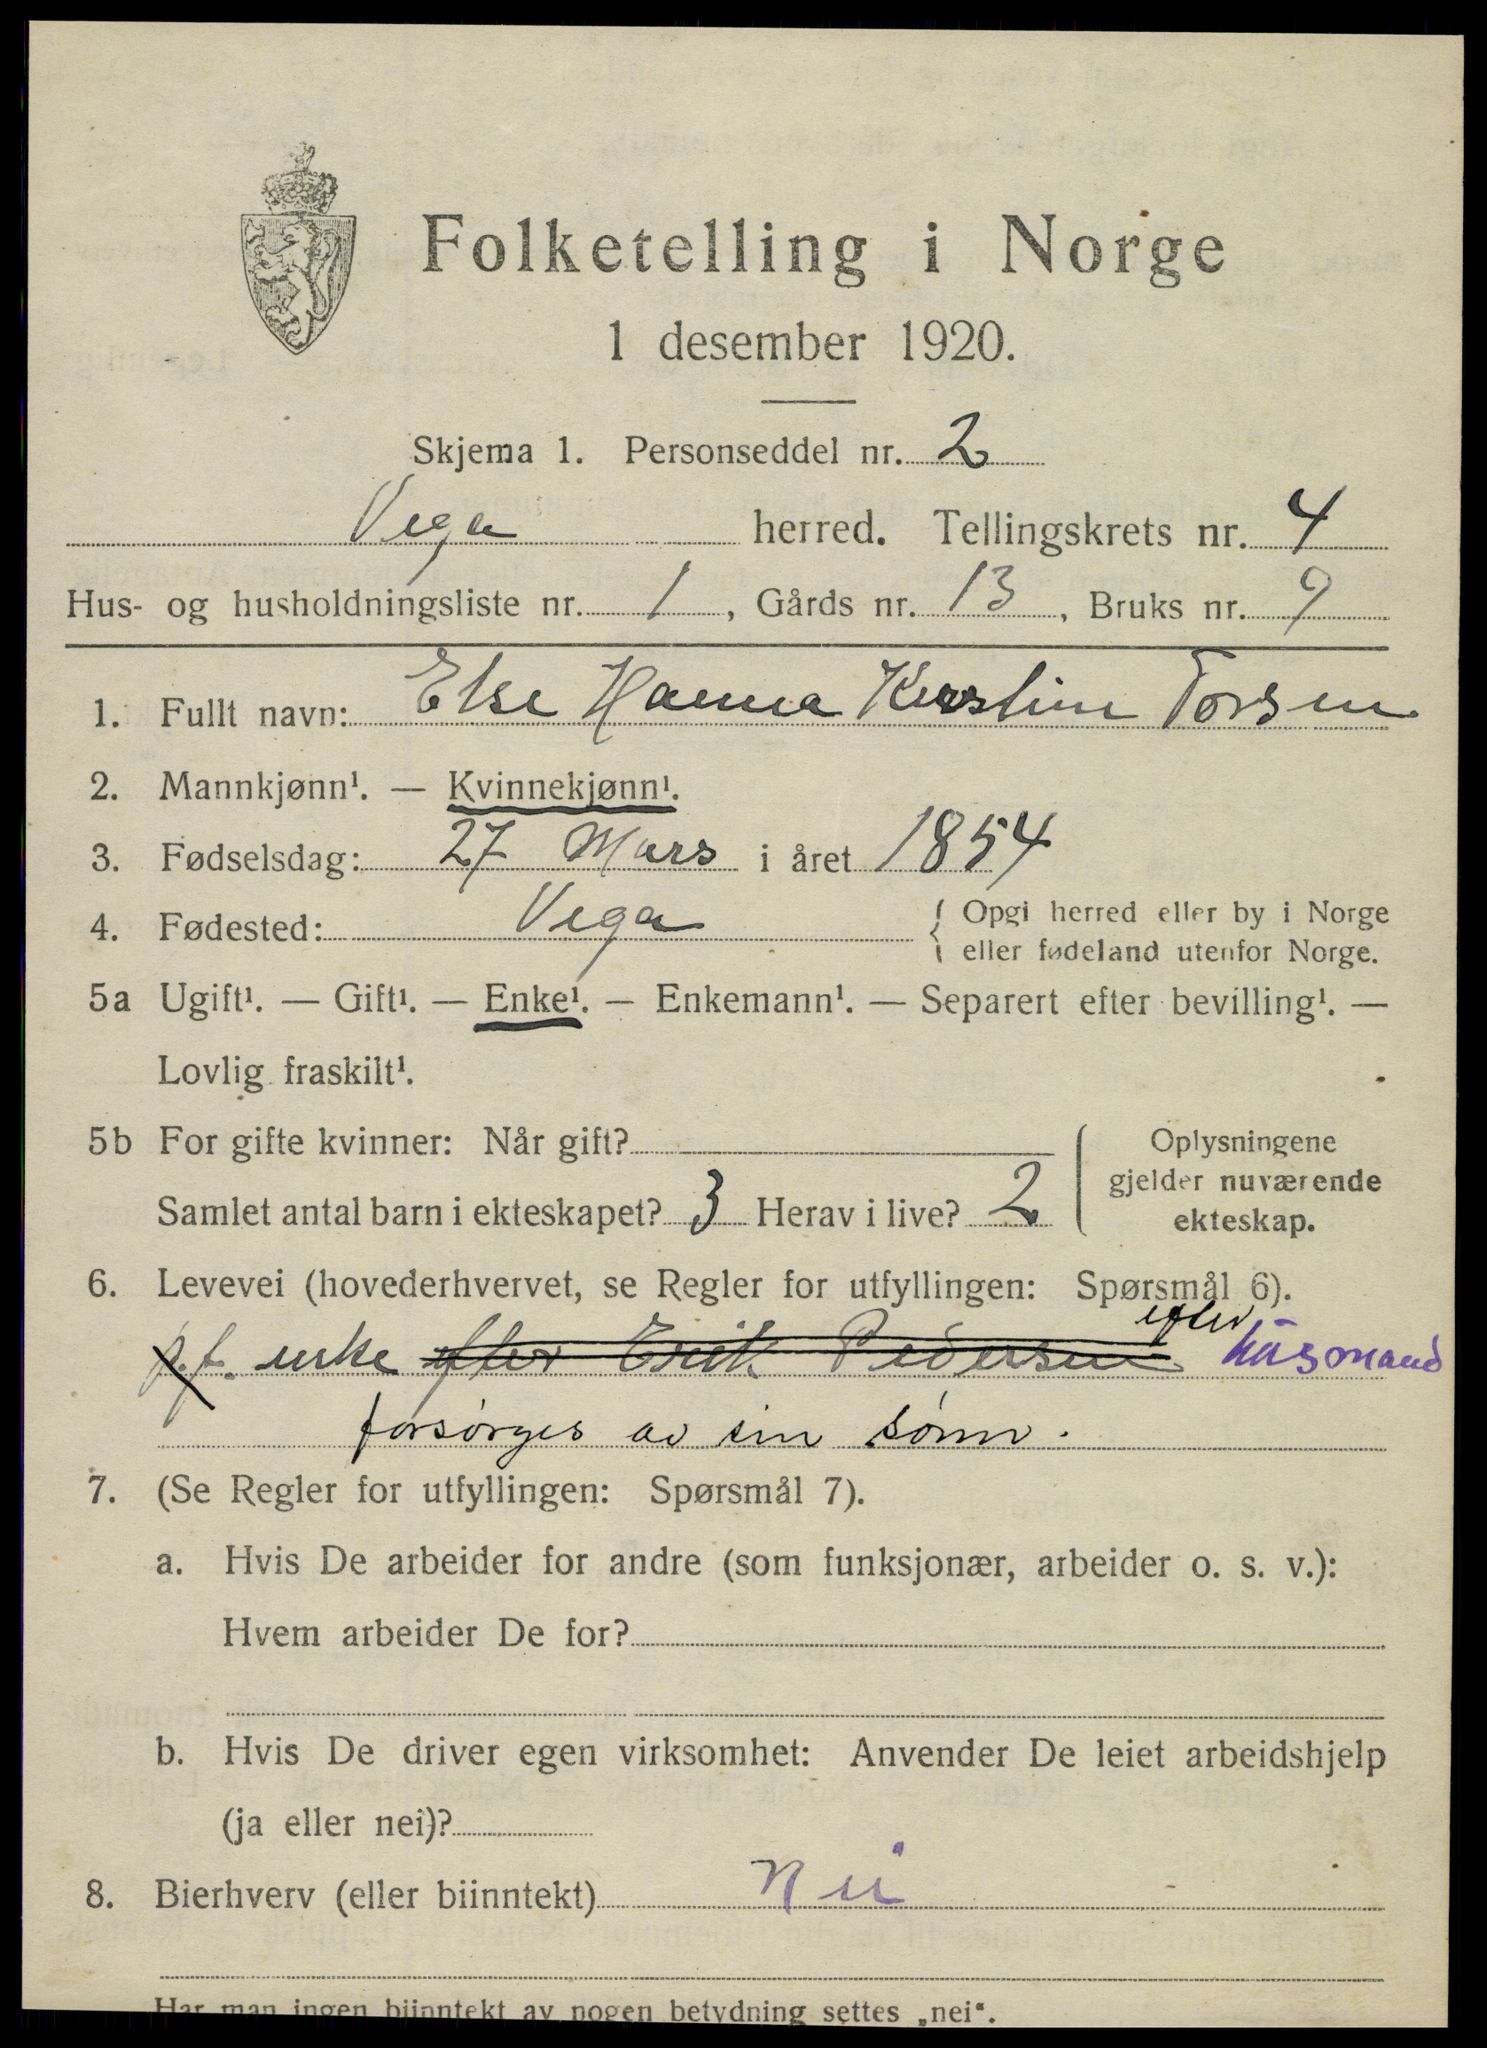 Folketelling i Norge
1 desember 1920.
Skjema 1. Personseddel nr. 2
Vega herred. Tellingskrets nr. 4
Hus- og husholdningsliste nr. 1, Gårds nr. 13, Bruks nr. 9
1. Fullt navn: Else Hanna Kirstine Torsen
2. Mannkjønn¹. — Kvinnekjønn¹.
3. Fødselsdag: 27 Mars i året 1854
4. Fødested: Vega { Opgi herred eller by i Norge
eller fødeland utenfor Norge.
5a Ugift¹. — Gift¹. — Enke¹. — Enkemann¹. — Separert efter bevilling¹. —
Lovlig fraskilt¹.
5b For gifte kvinner: Når gift?
Samlet antal barn i ekteskapet? 3 Herav i live? 2
Oplysningene
gjelder nuværende
ekteskap.
6. Levevei (hovederhvervet, se Regler for utfyllingen: Spørsmål 6).
efter
p.f. enke efter Erik Pedersen husmand
forsørges av sin sønn.
7. (Se Regler for utfyllingen: Spørsmål 7).
a. Hvis De arbeider for andre (som funksjonær, arbeider o. s. v.):
Hvem arbeider De for?
b. Hvis De driver egen virksomhet: Anvender De leiet arbeidshjelp
(ja eller nei)?
8. Bierhverv (eller biinntekt) Nei
Har man ingen biinntekt av nogen betydning settes „nei“.